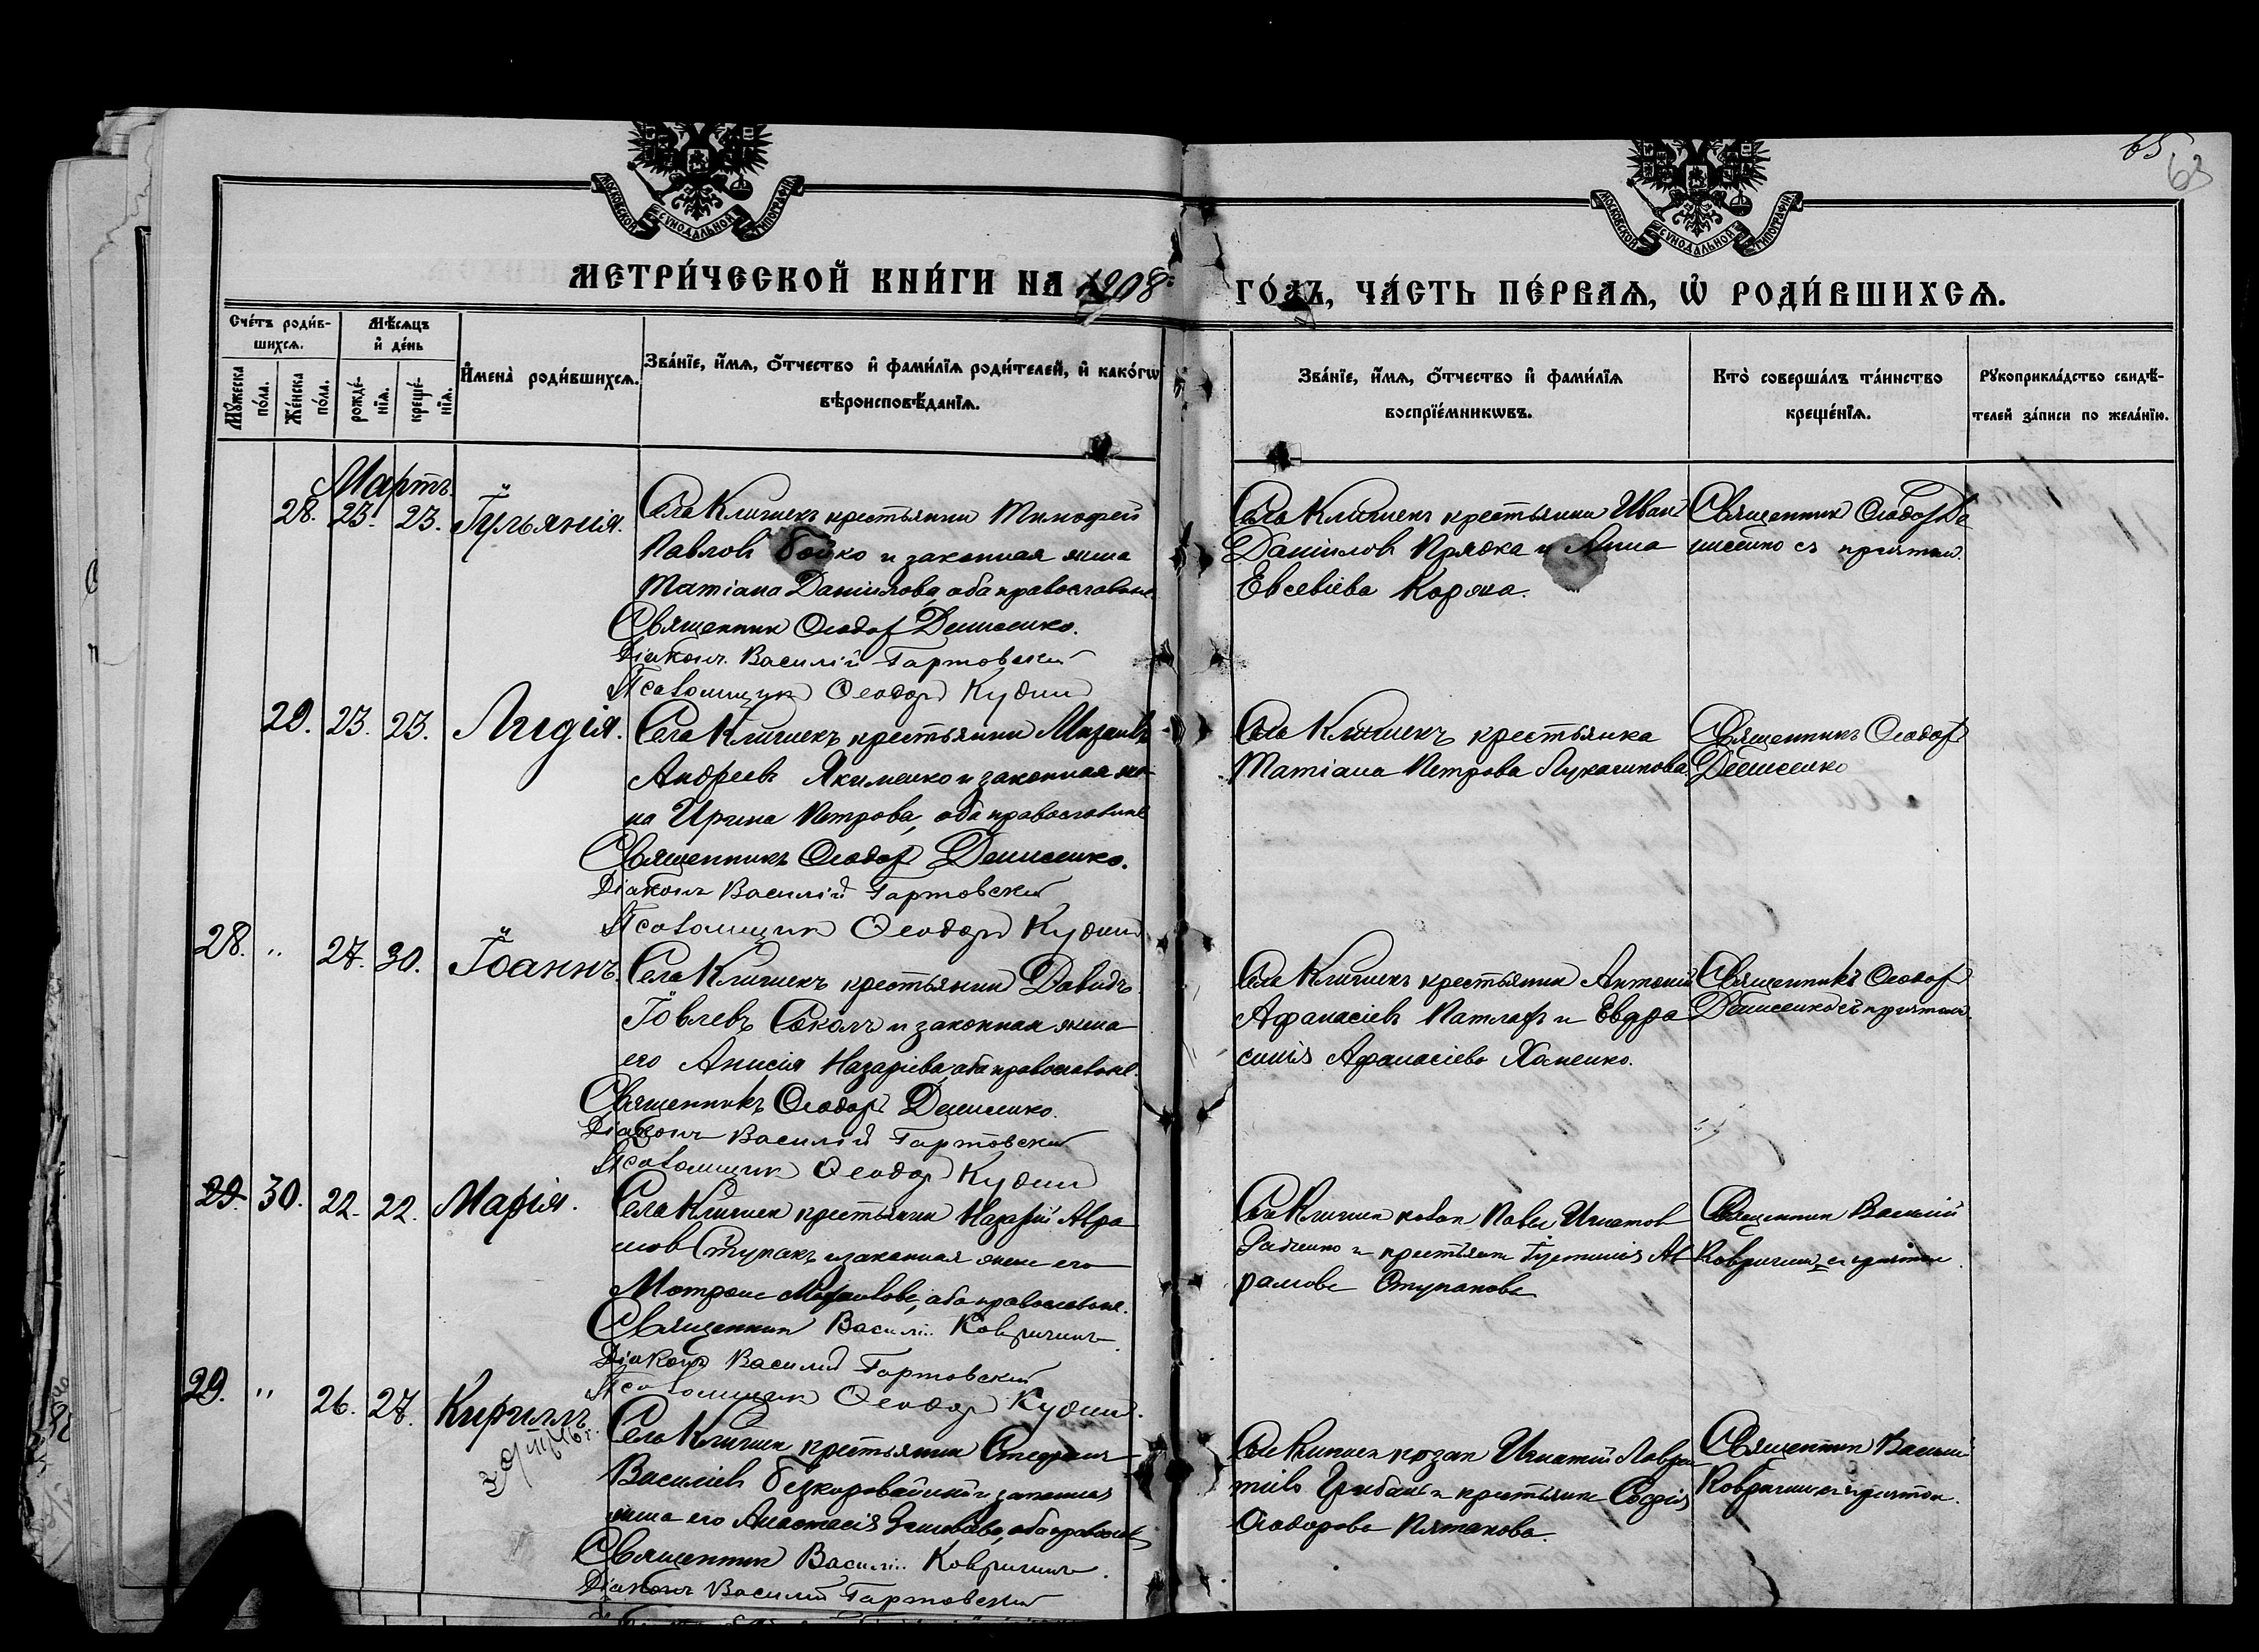 65
63
МОСКОВСКОЙ СѴНОДАЛЬНОЙ ТИПОГРАФІИ
МОСКОВСКОЙ СѴНОДАЛЬНОЙ ТИПОГРАФІИ
МЕТРИ́ЧЕСКОЙ КНИ́ГИ НА 1908
ГО́ДЪ, ЧА́СТЬ ПЕ́РВАѦ, Ѡ҆ РОДИ́ВШИХСѦ.
Сче́тъ роди́в-
шихсѧ.
Мѣ́сѧцъ
и҆ де́нь
Мꙋ́жеска
по́ла.
Же́нска
по́ла.
рожде́-
нїѧ.
креще́-
нїѧ.
И҆мена̀ роди́вшихсѧ.
Зва́нїе, и҆́мѧ, ѻ҆́тчество и҆ фами́лїѧ роди́телей, и҆ како́гѡ
вѣроисповѣ́данїѧ.
Зва́нїе, и҆́мѧ, ѻ҆́тчество и҆ фами́лїѧ
воспрїе́мникѡвъ.
Кто̀ соверша́лъ та́инство
креще́нїѧ.
Рꙋкоприкла́дство свидѣ́-
телей за́писи по жела́нїю.
Мартъ.
28. 23. 23. Іульянія.
Села Клишекъ крестьянин Тимофей
Павловъ Бойко и законная жена
Татіана Даніилова, оба православные
Священник Ѳеодор Денисенко.
Діаконъ Василій Гартовскій
Псаломщик Ѳеодор Кудин
Села Клишекъ крестьянин Иван
Даніилов Прядка и Анна
Евсевіева Коржа.
Священник Ѳеодор Де
нисенко съ причтом.
29. 23. 23. Лидія.
Села Клишекъ крестьянин Михаилъ
Андреевъ Якименко и законная же-
на Ирина Петрова, оба православные
Священникъ Ѳеодор Денисенко.
Діаконъ Василій Гартовскій
Псаломщик Ѳеодор Кудин
Села Клишекъ крестьянка
Татіана Петрова Лукашикова
Священникъ Ѳеодор
Денисенко
28. " 27. 30. Іоаннъ.
Села Клишекъ крестьянин Давидъ
Іовлевъ Соколъ и законная жена
его Анисія Назаріева, оба православные.
Священникъ Ѳеодор Денисенко.
Діаконъ Василій Гартовскій
Псаломщик Ѳеодор Кудин
Села Клишекъ крестьянин Антоній
Афанасіевъ Патлах и Евфро
синія Афанасіева Ханенко.
Священникъ Ѳеодор
Денисенко съ причтом.
29. 30. 22. 22. Марія.
Села Клишек крестьянин Назарій Авра
мов Ступакъ и законная жена его
Матрона оба православные.
Священник Василій Ковригин
Діаконъ Василій Гартовскій
Псаломщик Ѳеодор Кудин.
Села Клишек козак Павел Игнатов
и крестьянка Іустинія Ав
рамова Ступакова
Священник Василій
Ковригин с причтом.
29. " 26. 27. Кириллъ.
Села Клишек крестьянин Стефан
Василіев Безкоровайный и законная
жена его Анастасія оба православ
Священник Василій Ковригин.
Діаконъ Василій Гартовскій
Села Клишек козак Игнатій Лаврен
тіевъ Грибан и крестьянка Софія
Ѳеодорова Пятакова.
Священник Василій
Ковригин с причтом.